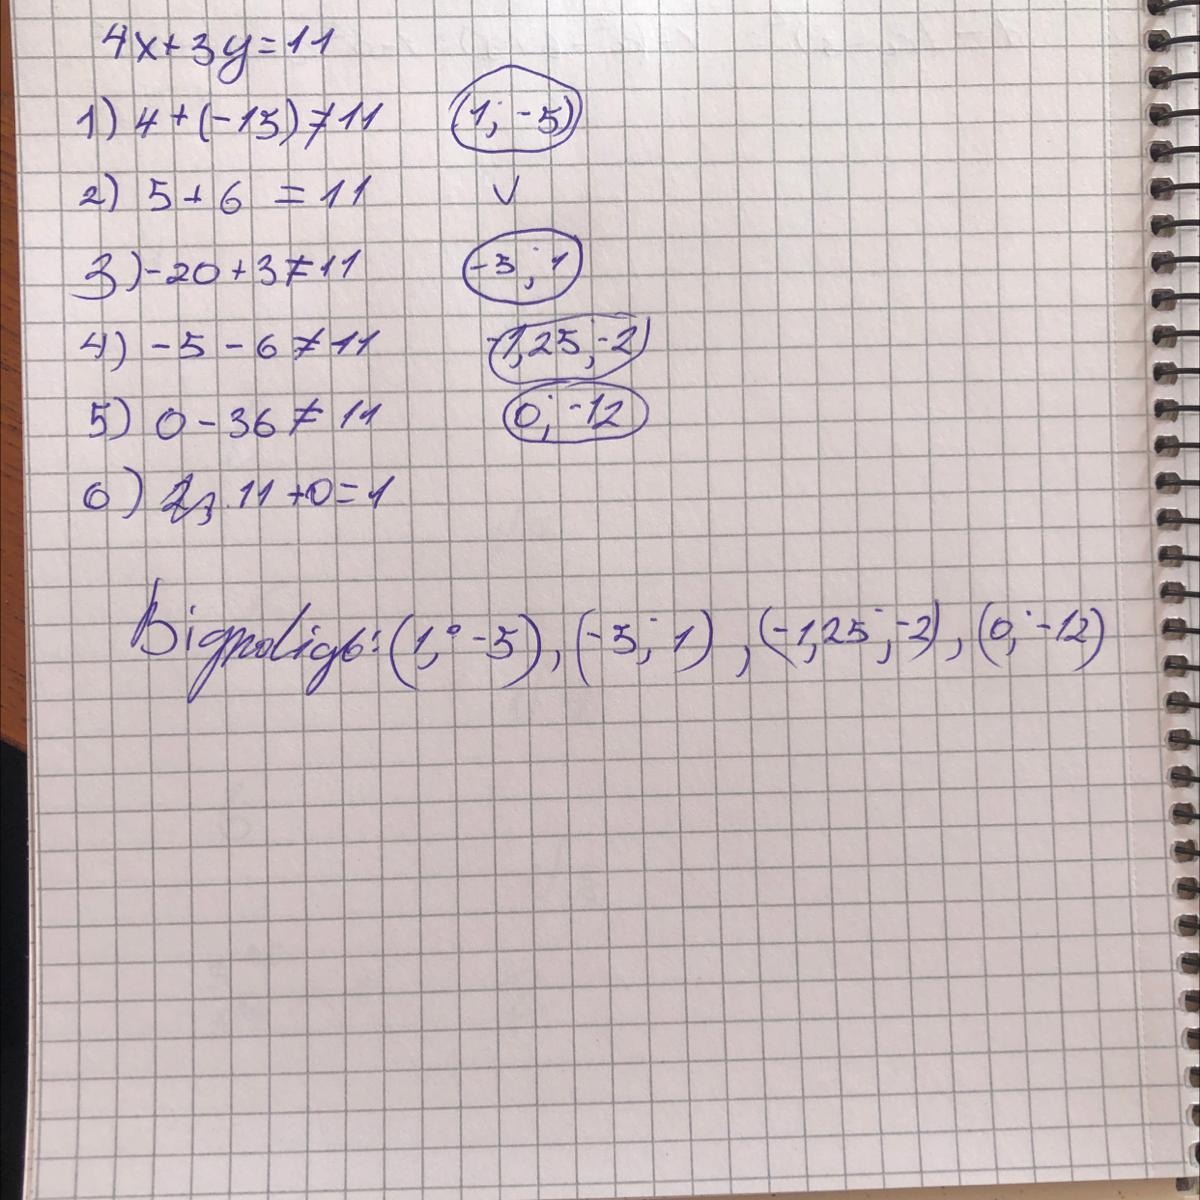 4x+3y=11
1) 4+(-15)≠11 (1; -5)
2) 5+6 =11 v
3) -20+3≠11 -5; 1
4) -5-6≠11 -1,25; -2
5) 0-36≠11 0; -12
6) 11+0=1
Відповідь: (1; -5), (-5; 1), (-1,25; -2), (0; -12)